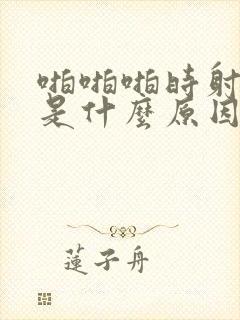 啪啪啪時射
是什麼原因
蓮子舟